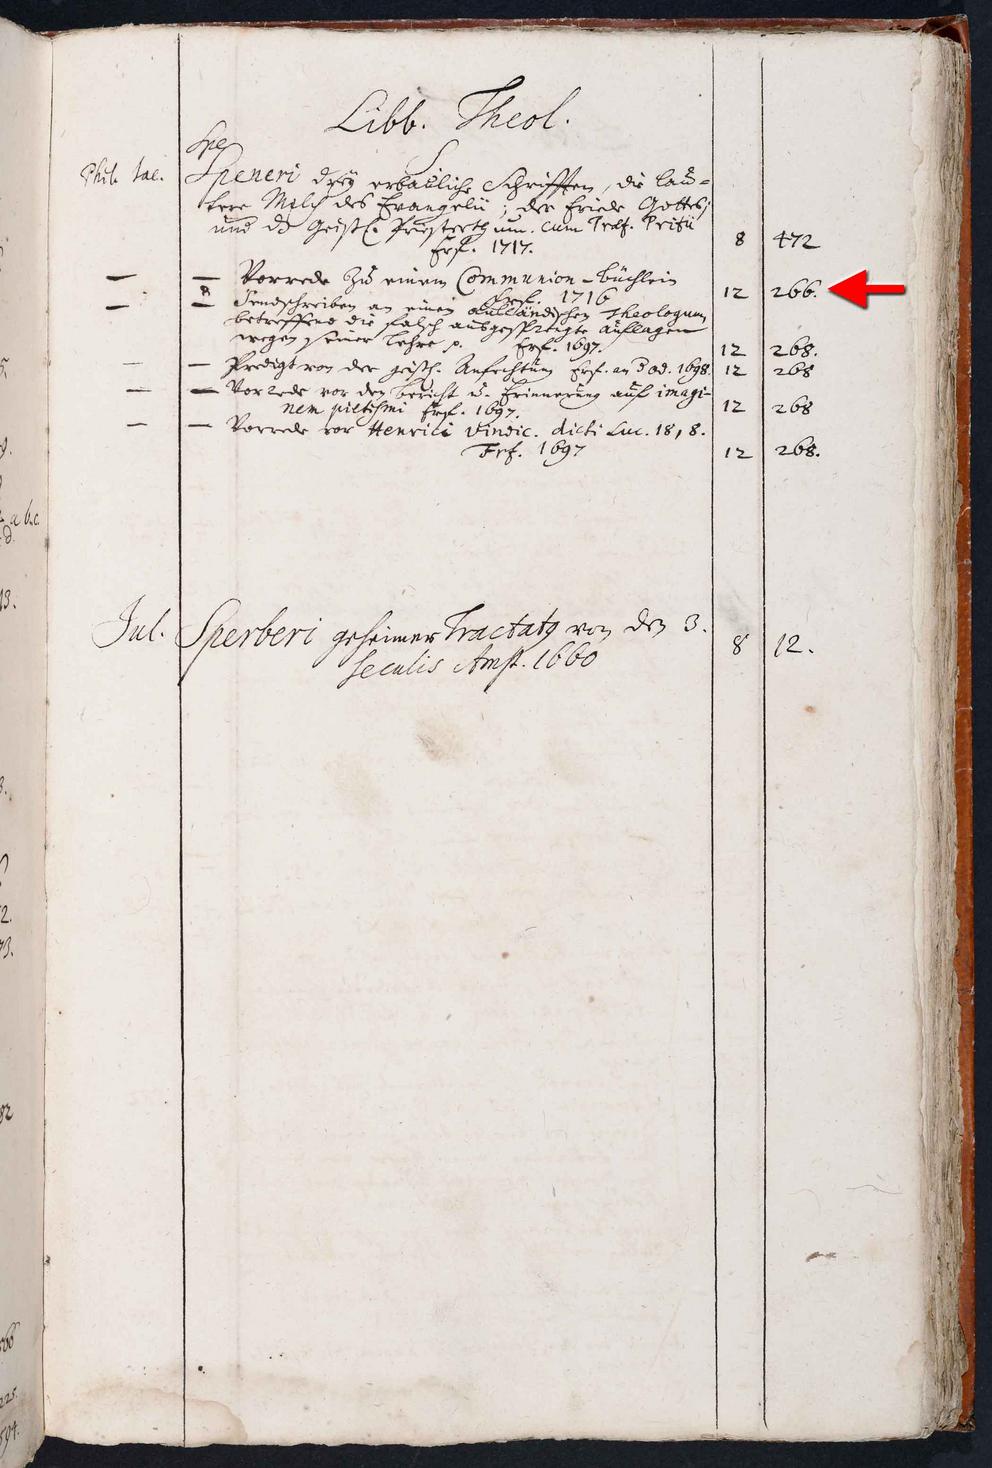 Libb. Theol.
Spe
Phil. Jac. Speneri drey erbauliche Schrifften, die lau-
tere Milch des Evangelii; der Friede Gottes;
und das Geistl. Priesterthum. cum Præf. Pritii
Frf. 1717. 8 472
— — Vorrede Zu einem Communion-büchlein
Frf. 1716 12 266.
— — Sendschreiben an einen außländischen Theologum,
betreffend die falsch ausgesprengte auflagen
wegen seiner Lehre p. Frf. 1697. 12 268.
— — Predigt von der geistl. Anfechtung Frf. an d Od. 1698. 12 268
— — Vorrede vor den bericht u. Erinnerung auf imagi-
nem pietismi Frf. 1697. 12 268
— — Vorrede vor Henrici Vindic. dicti Luc. 18, 8.
Frf. 1697 12 268.
Jul. Sperberi geheimer Tractatus von den 3.
Seculis Amst. 1660 8 12.